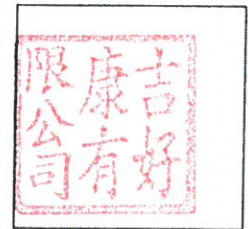 吉好
康有
限公司